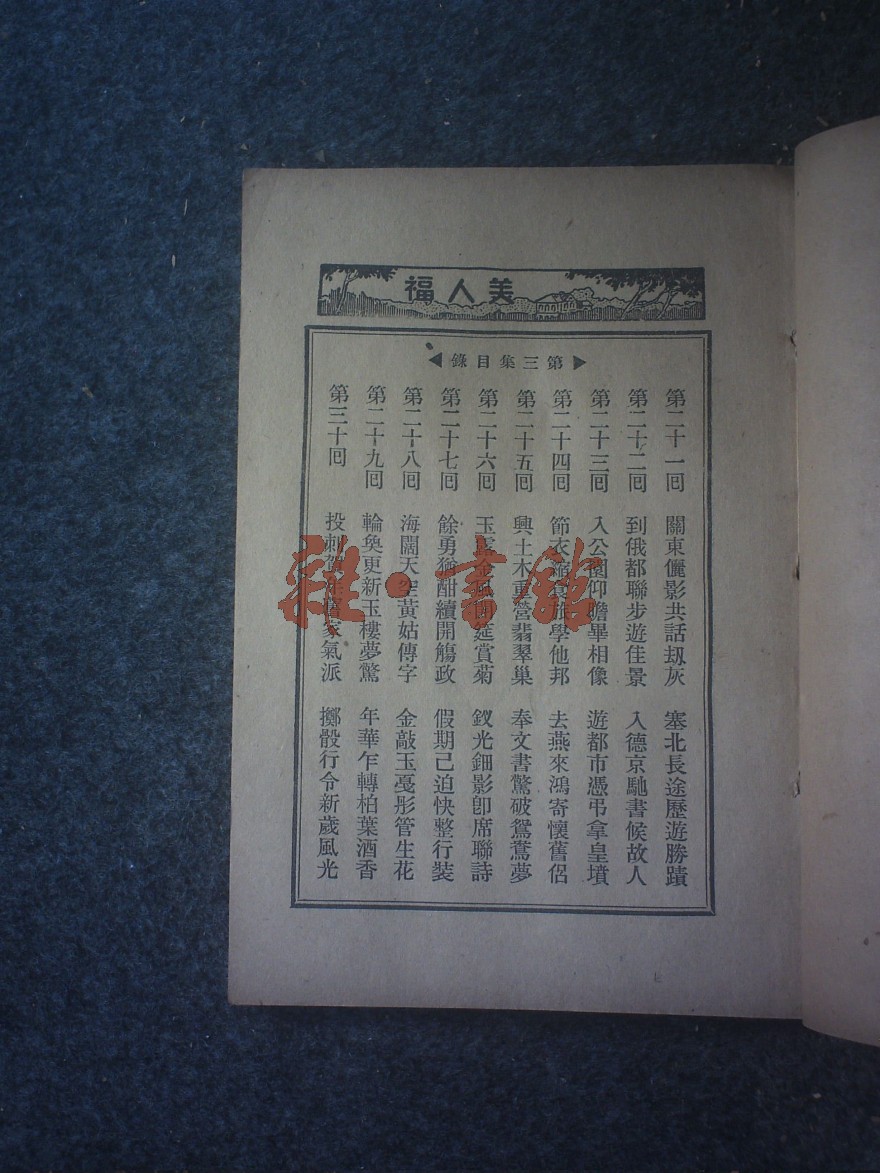 美人福
▶第三集目錄◀
第二十一回 關東儷影共話刼灰 塞北長途歷遊勝蹟
第二十二回 到俄都聯步遊佳景 入德京馳書候故人
第二十三回 入公園仰瞻畢相像 遊都市憑弔拿皇墳
第二十四回 節衣縮食旅學他邦 去燕來鴻寄懷舊侶
第二十五回 興土木重營翡翠巢 奉文書驚破鴛鴦夢
第二十六回 玉露金風開筵賞菊 釵光鈿影卽席聯詩
第二十七回 餘勇猶酣續開觴政 假期已迫快整行裝
第二十八回 海闊天空黃姑傳字 金敲玉戞彤管生花
第二十九回 輪奐更新玉樓夢驚 年華乍轉柏葉酒香
第三十回 投刺賀年舊家氣派 擲骰行令新歲風光
雜·書館